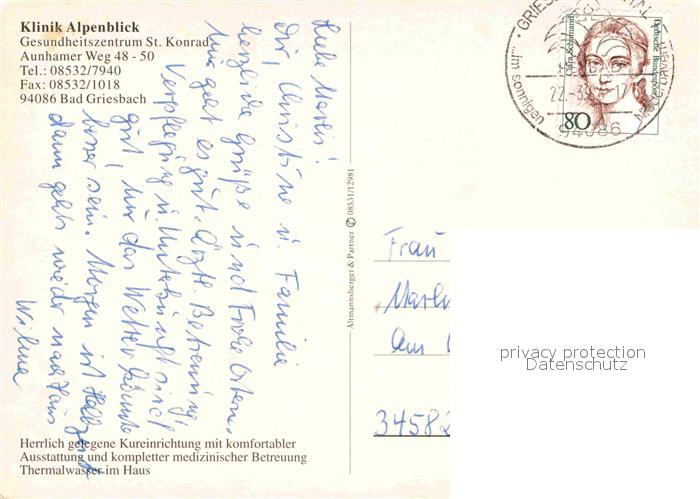 Klinik Alpenblick
Gesundheitszentrum St. Konrad
Aunhamer Weg 48 - 50
Tel.: 08532/7940
Fax: 08532/1018
94086 Bad Griesbach
Liebe Marlis!
Dir, Christine u. Familie
herzliche Grüße und Frohe Ostern.
Mir geht es gut. Ärztl. Betreuung,
Verpflegung u. Unterkunft sind
gut, nur das Wetter könnte
besser sein. Morgen ist Halbzeit
dann gehts wieder nach Haus
Wilma
Herrlich gelegene Kureinrichtung mit komfortabler
Ausstattung und kompletter medizinischer Betreuung
Thermalwasser im Haus
Altmannsberger & Partner ✆ 08531/12981
Clara Schumann
Deutsche Bundespost
80
...im sonnigen
Niederbayern
94086
Frau
Am
3458
privacy protection
Datenschutz